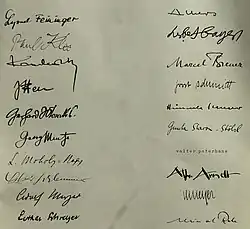 Lyonel Feininger
Paul Klee
Kandinsky
J Itten
Gerhard Marcks
Georg Muche
L. Moholy-Nagy
Oskar Schlemmer
Adolf Meyer
Lothar Schreyer
Albers
Herbert Bayer
Marcel Breuer
joost schmidt
Hinnerk Scheper
Gunta Sharon-Stölzl
walter peterhans
Alfr Arndt